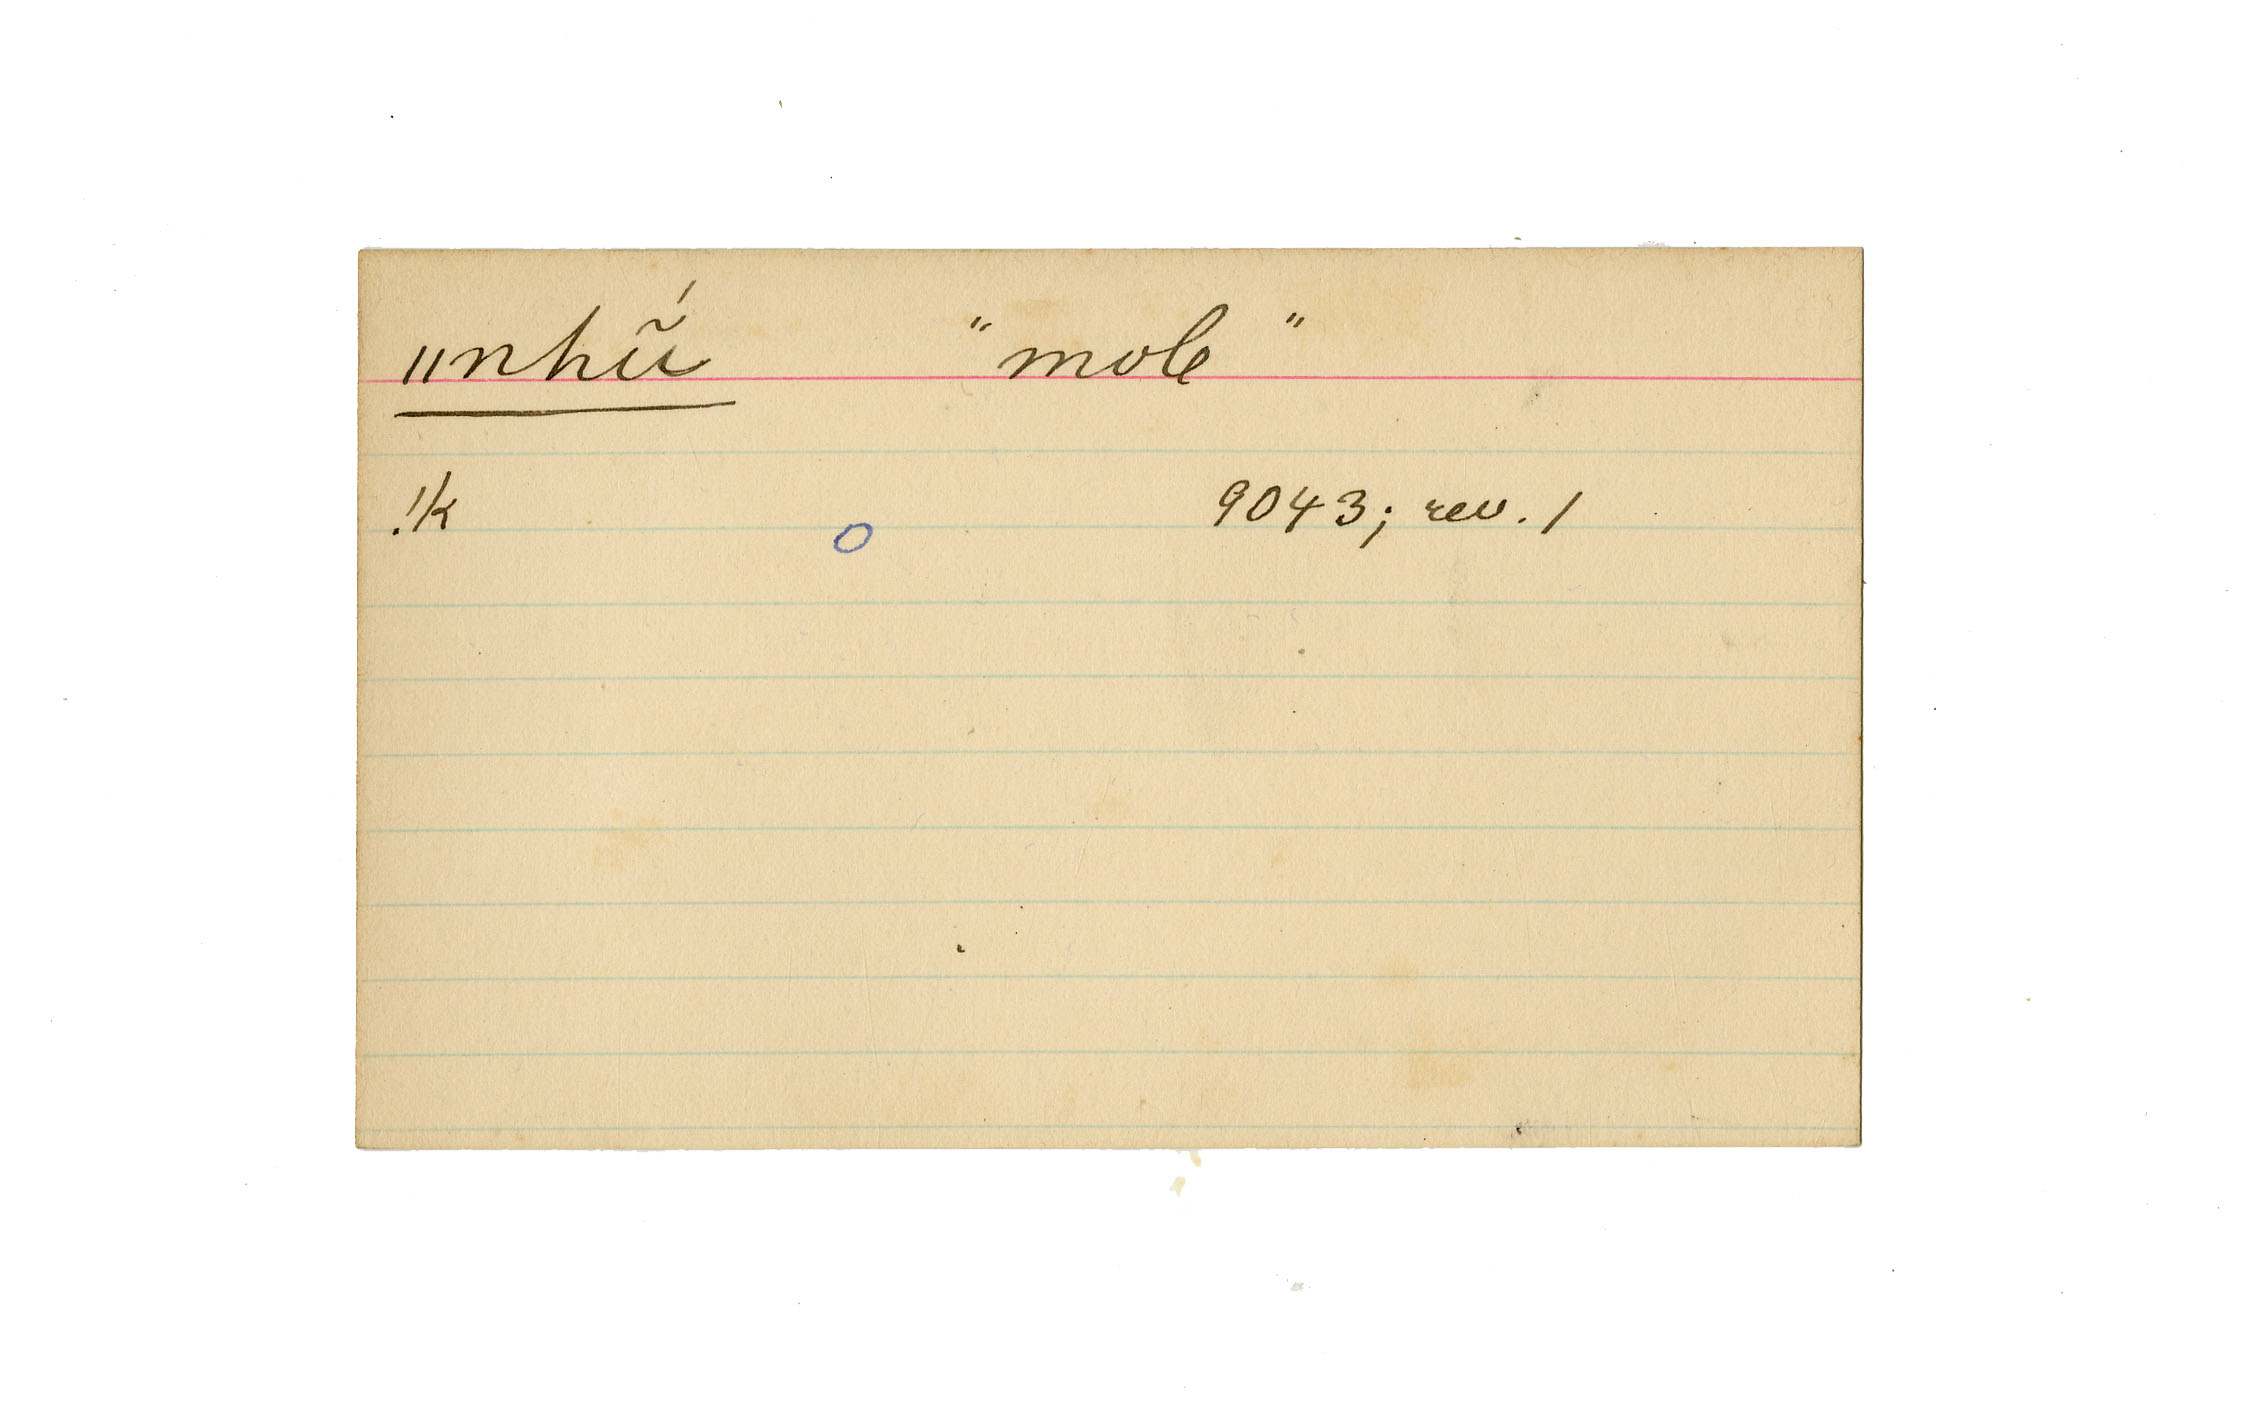 〃nhū̃́ "mole"
!k 9043; rev. 1